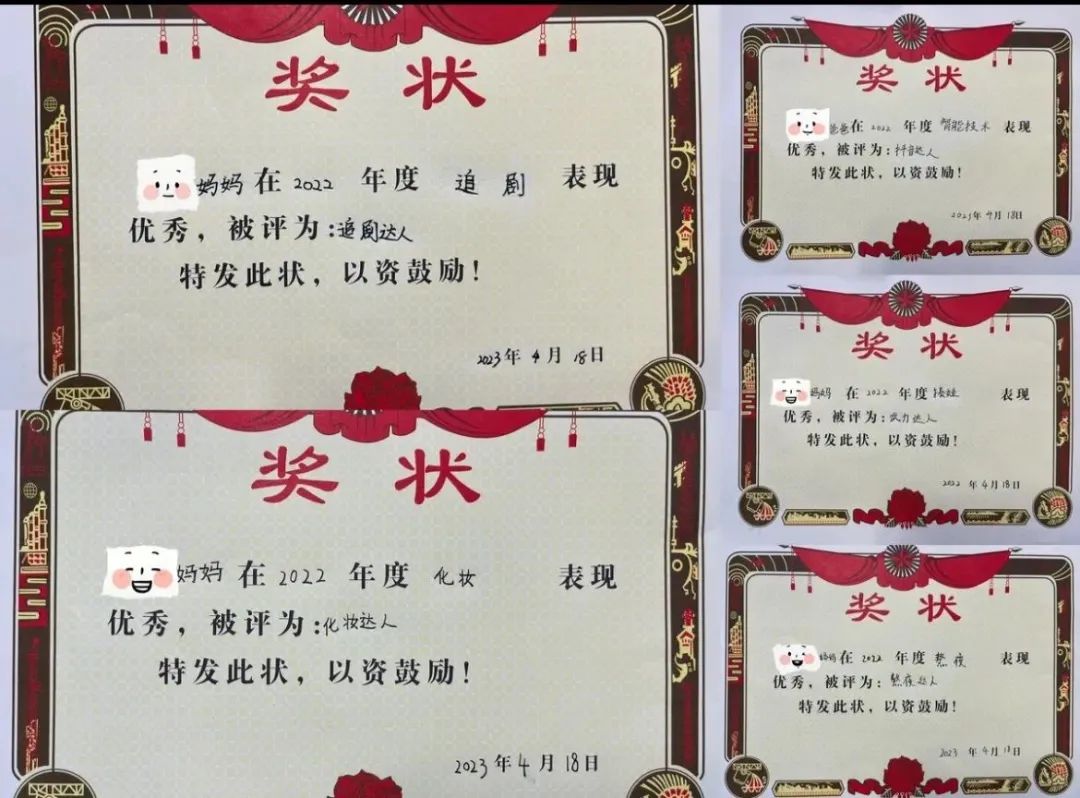 奖状
妈妈在2022年度 追剧 表现
优秀，被评为：追剧达人
特发此状，以资鼓励！
2023年4月18日
奖状
妈妈在2022年度 化妆 表现
优秀，被评为：化妆达人
特发此状，以资鼓励！
2023年4月18日
奖状
爸爸在2022年度 智能技术 表现
优秀，被评为：抖音达人
特发此状，以资鼓励！
2023年4月18日
奖状
妈妈 在2022年度 表现
优秀，被评为：武力达人
特发此状，以资鼓励！
2022年4月18日
奖状
妈妈在2022年度 熬夜 表现
优秀，被评为：熬夜达人
特发此状，以资鼓励！
2023年4月18日